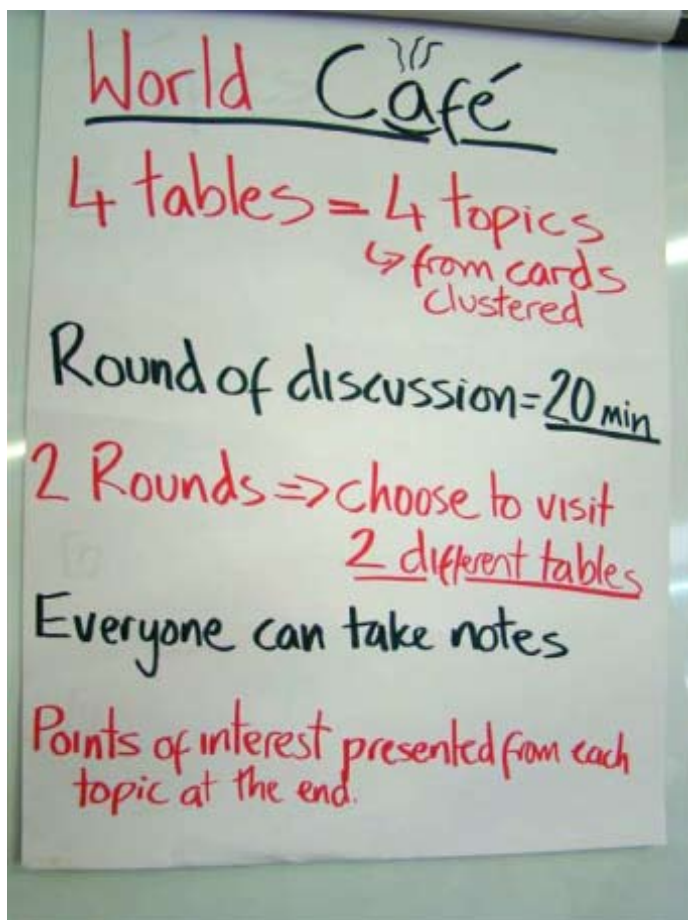 World Café
4 tables = 4 topics
↳ from cards
clustered
Round of discussion = 20 min
2 Rounds => choose to visit
2 different tables
Everyone can take notes
Points of interest presented from each
topic at the end.